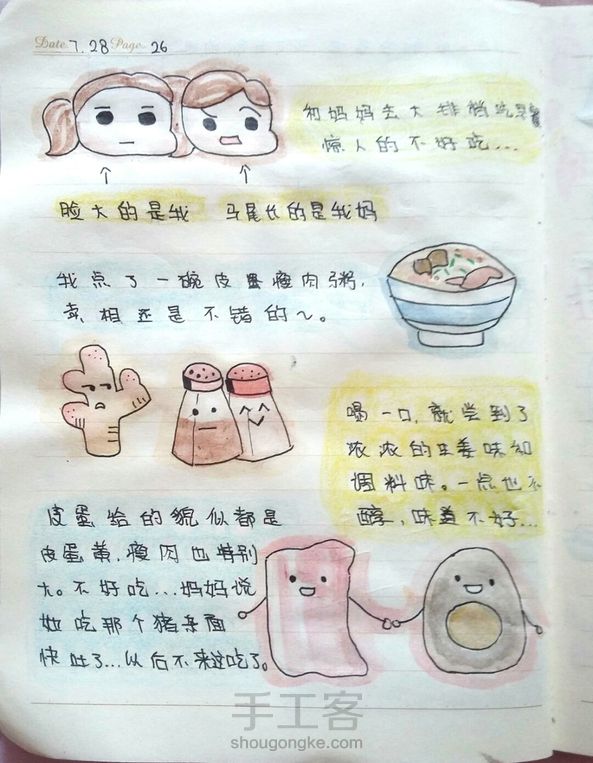 Date 7.28 Page 26
和妈妈去大排档吃早餐
惊人的不好吃...
脸大的是我 马尾长的是我妈
我点了一碗皮蛋瘦肉粥,
卖相还是不错的~。
喝一口,就尝到了
浓浓的生姜味和
调料味。一点也不
醇,味道不好...
皮蛋给的貌似都是
皮蛋黄,瘦肉也特别
大。不好吃...妈妈说
她吃那个猪杂面
快吐了...以后不来这吃了。
手工客
shougongke.com